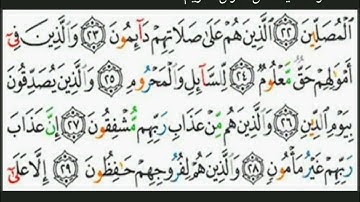 ٱلْمُصَلِّينَ ٢٢ ٱلَّذِينَ هُمْ عَلَىٰ صَلَاتِهِمْ دَآئِمُونَ ٢٣ وَٱلَّذِينَ فِىٓ
أَمْوَٰلِهِمْ حَقٌّ مَّعْلُومٌ ٢٤ لِّلسَّآئِلِ وَٱلْمَحْرُومِ ٢٥ وَٱلَّذِينَ يُصَدِّقُونَ
بِيَوْمِ ٱلدِّينِ ٢٦ وَٱلَّذِينَ هُم مِّنْ عَذَابِ رَبِّهِم مُّشْفِقُونَ ٢٧ إِنَّ عَذَابَ
رَبِّهِمْ غَيْرُ مَأْمُونٍ ٢٨ وَٱلَّذِينَ هُمْ لِفُرُوجِهِمْ حَٰفِظُونَ ٢٩ إِلَّا عَلَىٰٓ